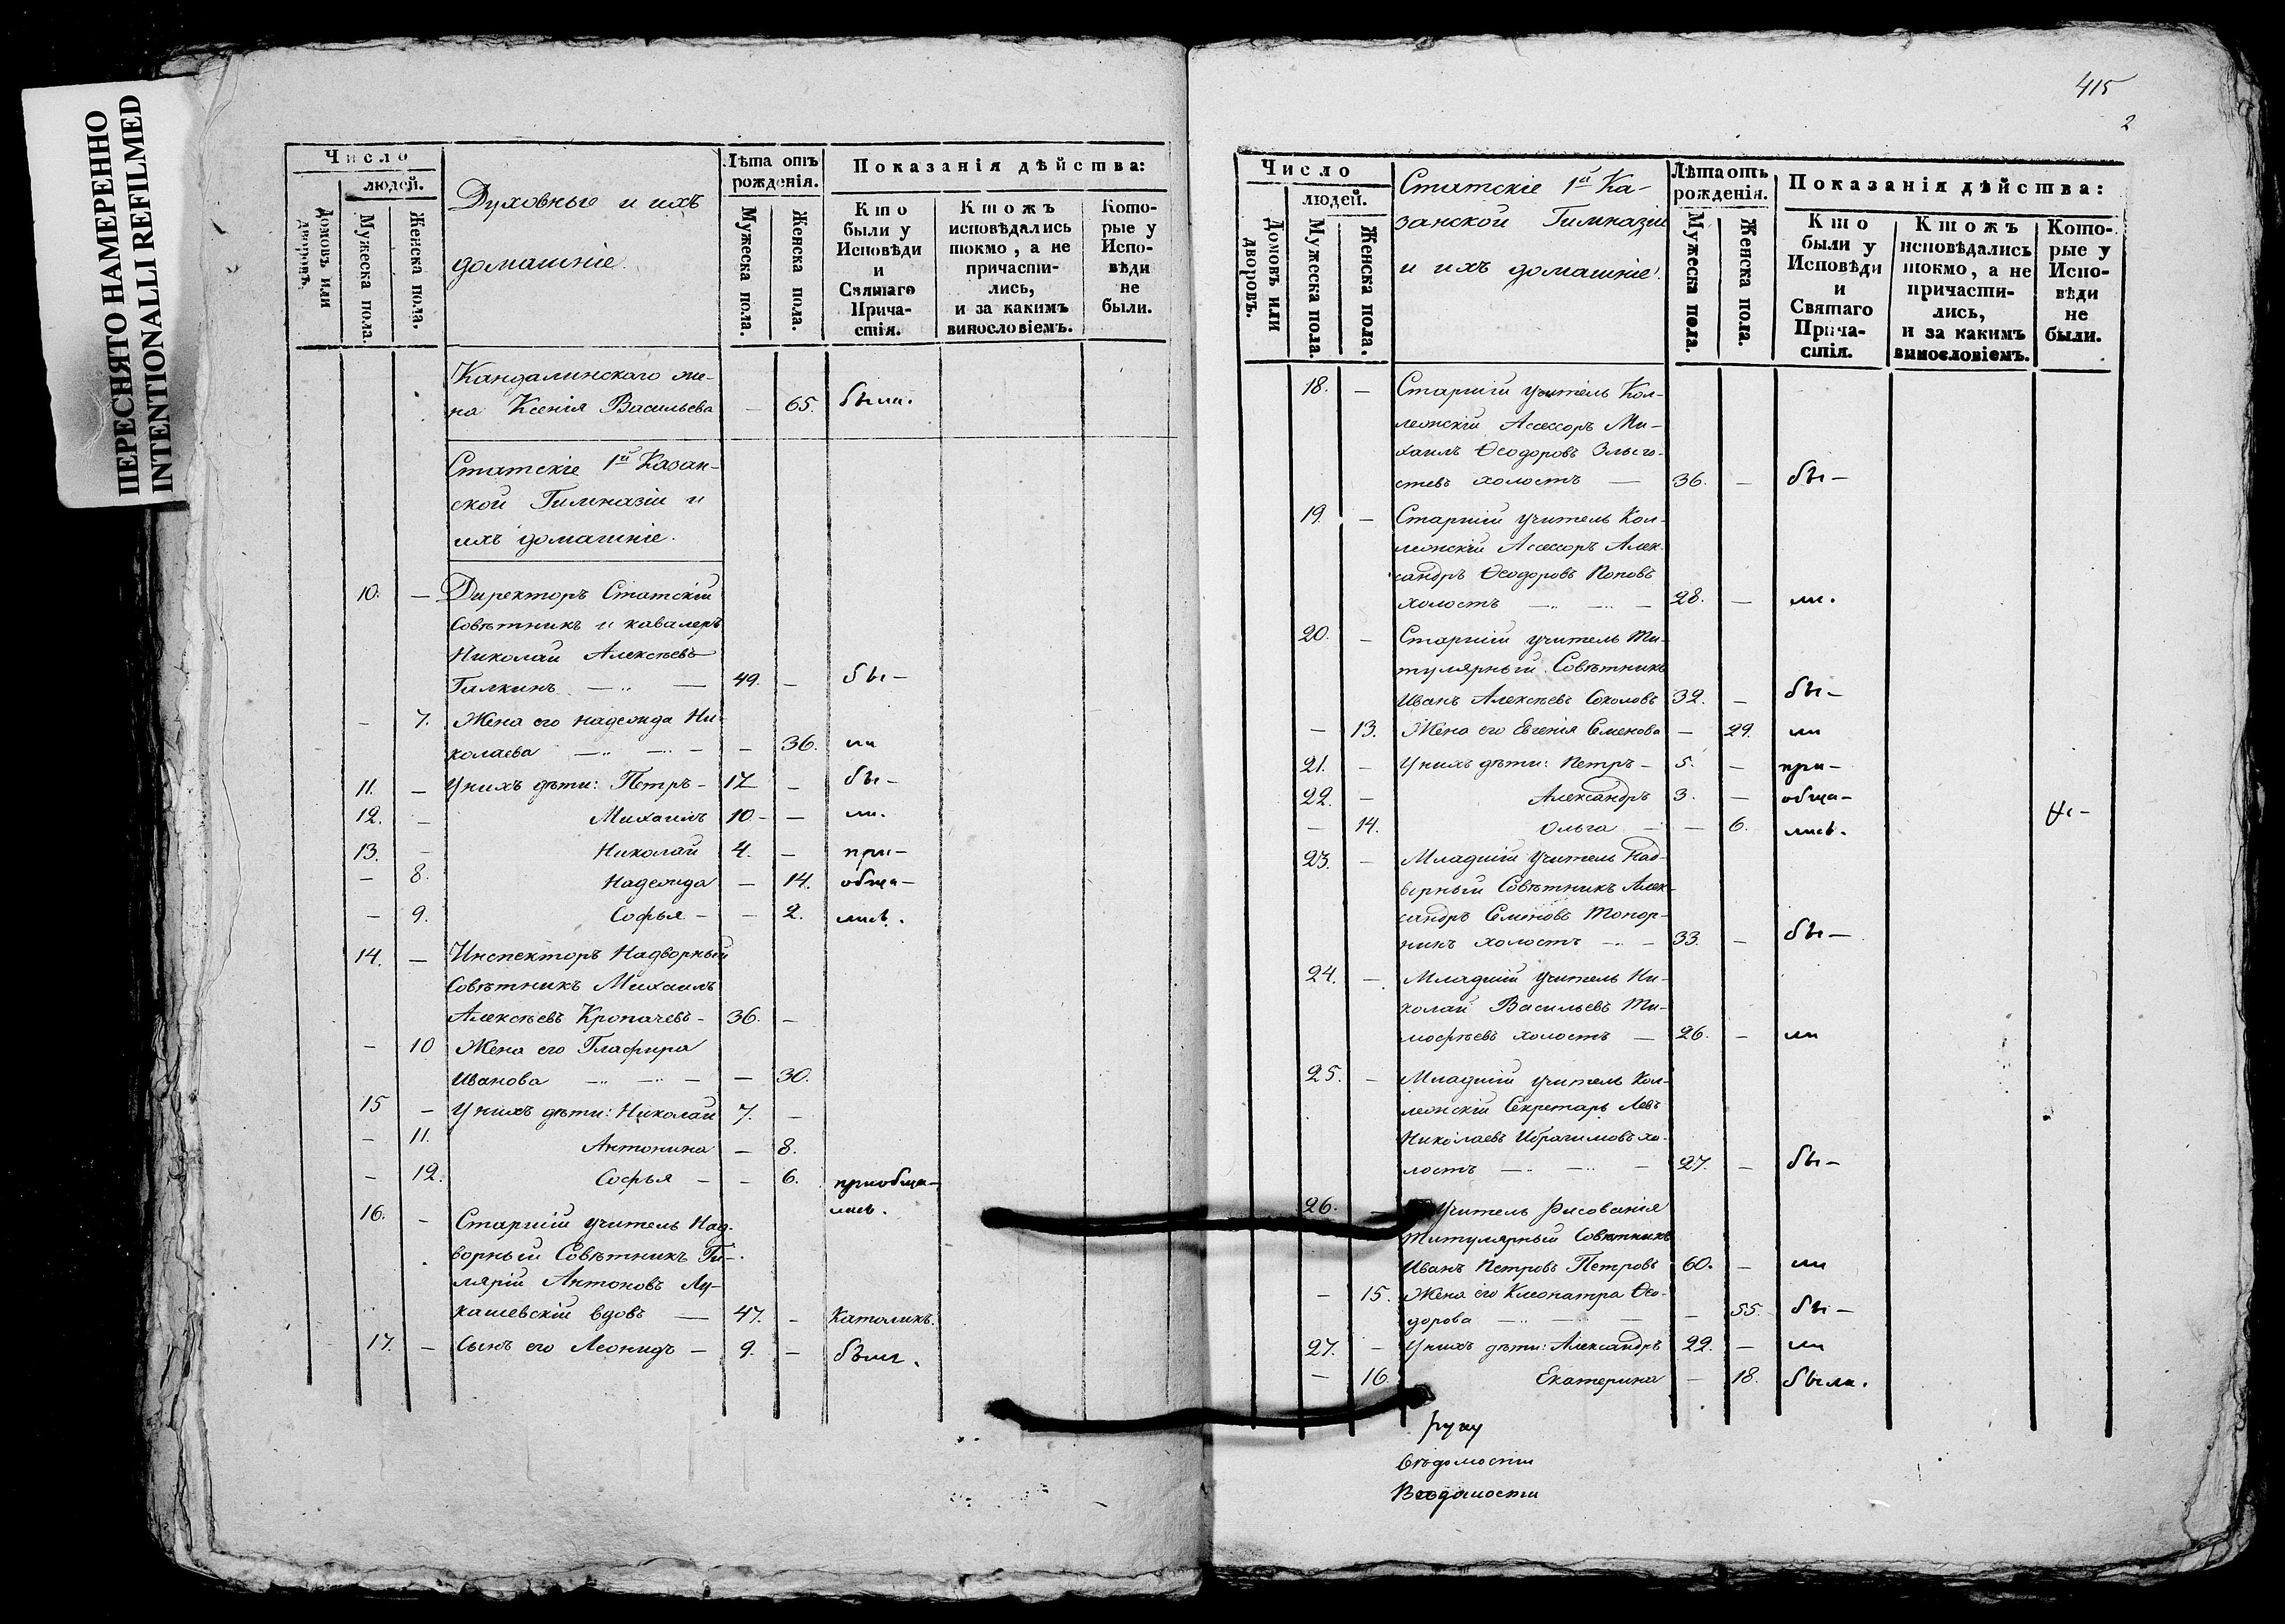 ПЕРЕСНЯТО НАМЕРЕННО
INTENTIONALLI REFILMED
Число
людей.
Домовъ или дворовъ.
Мужеска пола.
Женска пола.
Духовные и ихъ
домашніе.
Лѣта отъ рожденія.
Мужеска пола.
Женска пола.
Показанія дѣйства:
Кто были у Исповѣди и Святаго Причастія.
Ктожъ исповѣдались токмо, а не причастились, и за какимъ винословіемъ.
Которые у Исповѣди не были.
Кандалинскаго же-
на Ксенія Васильева — 65. были.
Статскіе 1й Казан-
ской Гимназіи и
ихъ домашніе.
10. — Директоръ Статскій
Совѣтникъ и кавалеръ
Николай Алексѣевъ
Галкинъ — 49. — бы-
— 7. Жена его Надежда Ни-
колаева — — 36. ли
11. — У нихъ дѣти: Петръ - 12 — бы-
12. — Михаилъ 10. — ли.
13. — Николай 4. — при-
— 8. Надежда — 14. обща-
— 9. Софья — 2. лись.
14. — Инспекторъ Надворный
Совѣтникъ Михаилъ
Алексѣевъ Кропачевъ - 36. —
— 10 Жена его Глафира
Иванова — — 30.
15 — У нихъ дѣти: Николай 7. —
— 11. Антонина — 8.
— 12. Софья — 6. приобща-
лись.
16. — Старшій учитель Над-
ворный Совѣтникъ Ги-
лярій Антоновъ Лу-
кашевскій вдовъ — 47. — Католикъ.
17. — Сынъ его Леонидъ — 9. — былъ.
415
2
Число
людей.
Домовъ или дворовъ.
Мужеска пола.
Женска пола.
Статскіе 1й Ка-
занской Гимназіи
и ихъ домашніе.
Лѣта отъ рожденія.
Мужеска пола.
Женска пола.
Показанія дѣйства:
Кто были у Исповѣди и Святаго Причастія.
Ктожъ исповѣдались токмо, а не причастились, и за какимъ винословіемъ.
Которые у Исповѣди не были.
18. — Старшій учитель Кол-
лежскій Ассессоръ Ми-
хаилъ Ѳеодоровъ
холостъ — 36. — бы-
19. — Старшій учитель Кол-
лежскій Ассессоръ Алек-
сандръ Ѳеодоровъ Поповъ
холостъ — 28. — ли.
20. — Старшій учитель Ти-
тулярный Совѣтникъ
Иванъ Алексѣевъ Соколовъ 32. — бы-
— 13. Жена его Евгенія Семенова — 29. ли
21. — У нихъ дѣти: Петръ - 5. — при-
22. — Александръ 3. — обща-
— 14. Ольга — 6. лись. Не-
23. — Младшій Учитель Над-
ворный Совѣтникъ Алек-
сандръ Семеновъ Топор-
нинъ холостъ — 33. — бы-
24. — Младшій учитель Ни-
колай Васильевъ Ти-
мофѣевъ холостъ — 26. — ли
25. — Младшій учитель Кол-
лежскій Секретарь Левъ
Николаевъ Ибрагимовъ хо-
лостъ — 27. — бы-
26. — Учитель Рисованія
Титулярный Совѣтникъ
Иванъ Петровъ Петровъ 60. — ли
— 15. Жена его Клеопатра Ѳео-
дорова — — 55. бы-
27. — У нихъ дѣти: Александръ 22. — ли
— 16. Екатерина — 18. была.
руку
вѣдомости
Вѣдомости